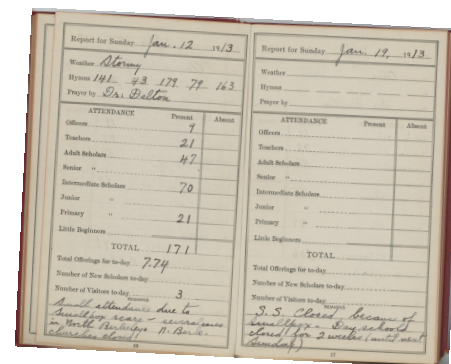 Report for Sunday Jan. 12 1913
Weather Stormy
Hymns 141 43 179 79 163
Prayer by Dr. Dalton
ATTENDANCE Present Absent
Officers 9
Teachers 21
Adult Scholars 47
Senior "
Intermediate Scholars 70
Junior "
Primary " 21
Little Beginners
TOTAL 171
Total Offerings for to-day 7.74
Number of New Scholars to-day
Number of Visitors to-day 3
REMARKS
Small attendance due to
smallpox scare - several cases
in North Berkeley. N. Berk.
churches closed!
Report for Sunday Jan. 19, 1913
Weather
Hymns
Prayer by
ATTENDANCE Present Absent
Officers
Teachers
Adult Scholars
Senior "
Intermediate Scholars
Junior "
Primary "
Little Beginners
TOTAL
Total Offerings for to-day
Number of New Scholars to-day
Number of Visitors to-day
REMARKS
S.S. Closed because of
smallpox - Day schools
closed for 2 weeks (until next
Sunday)